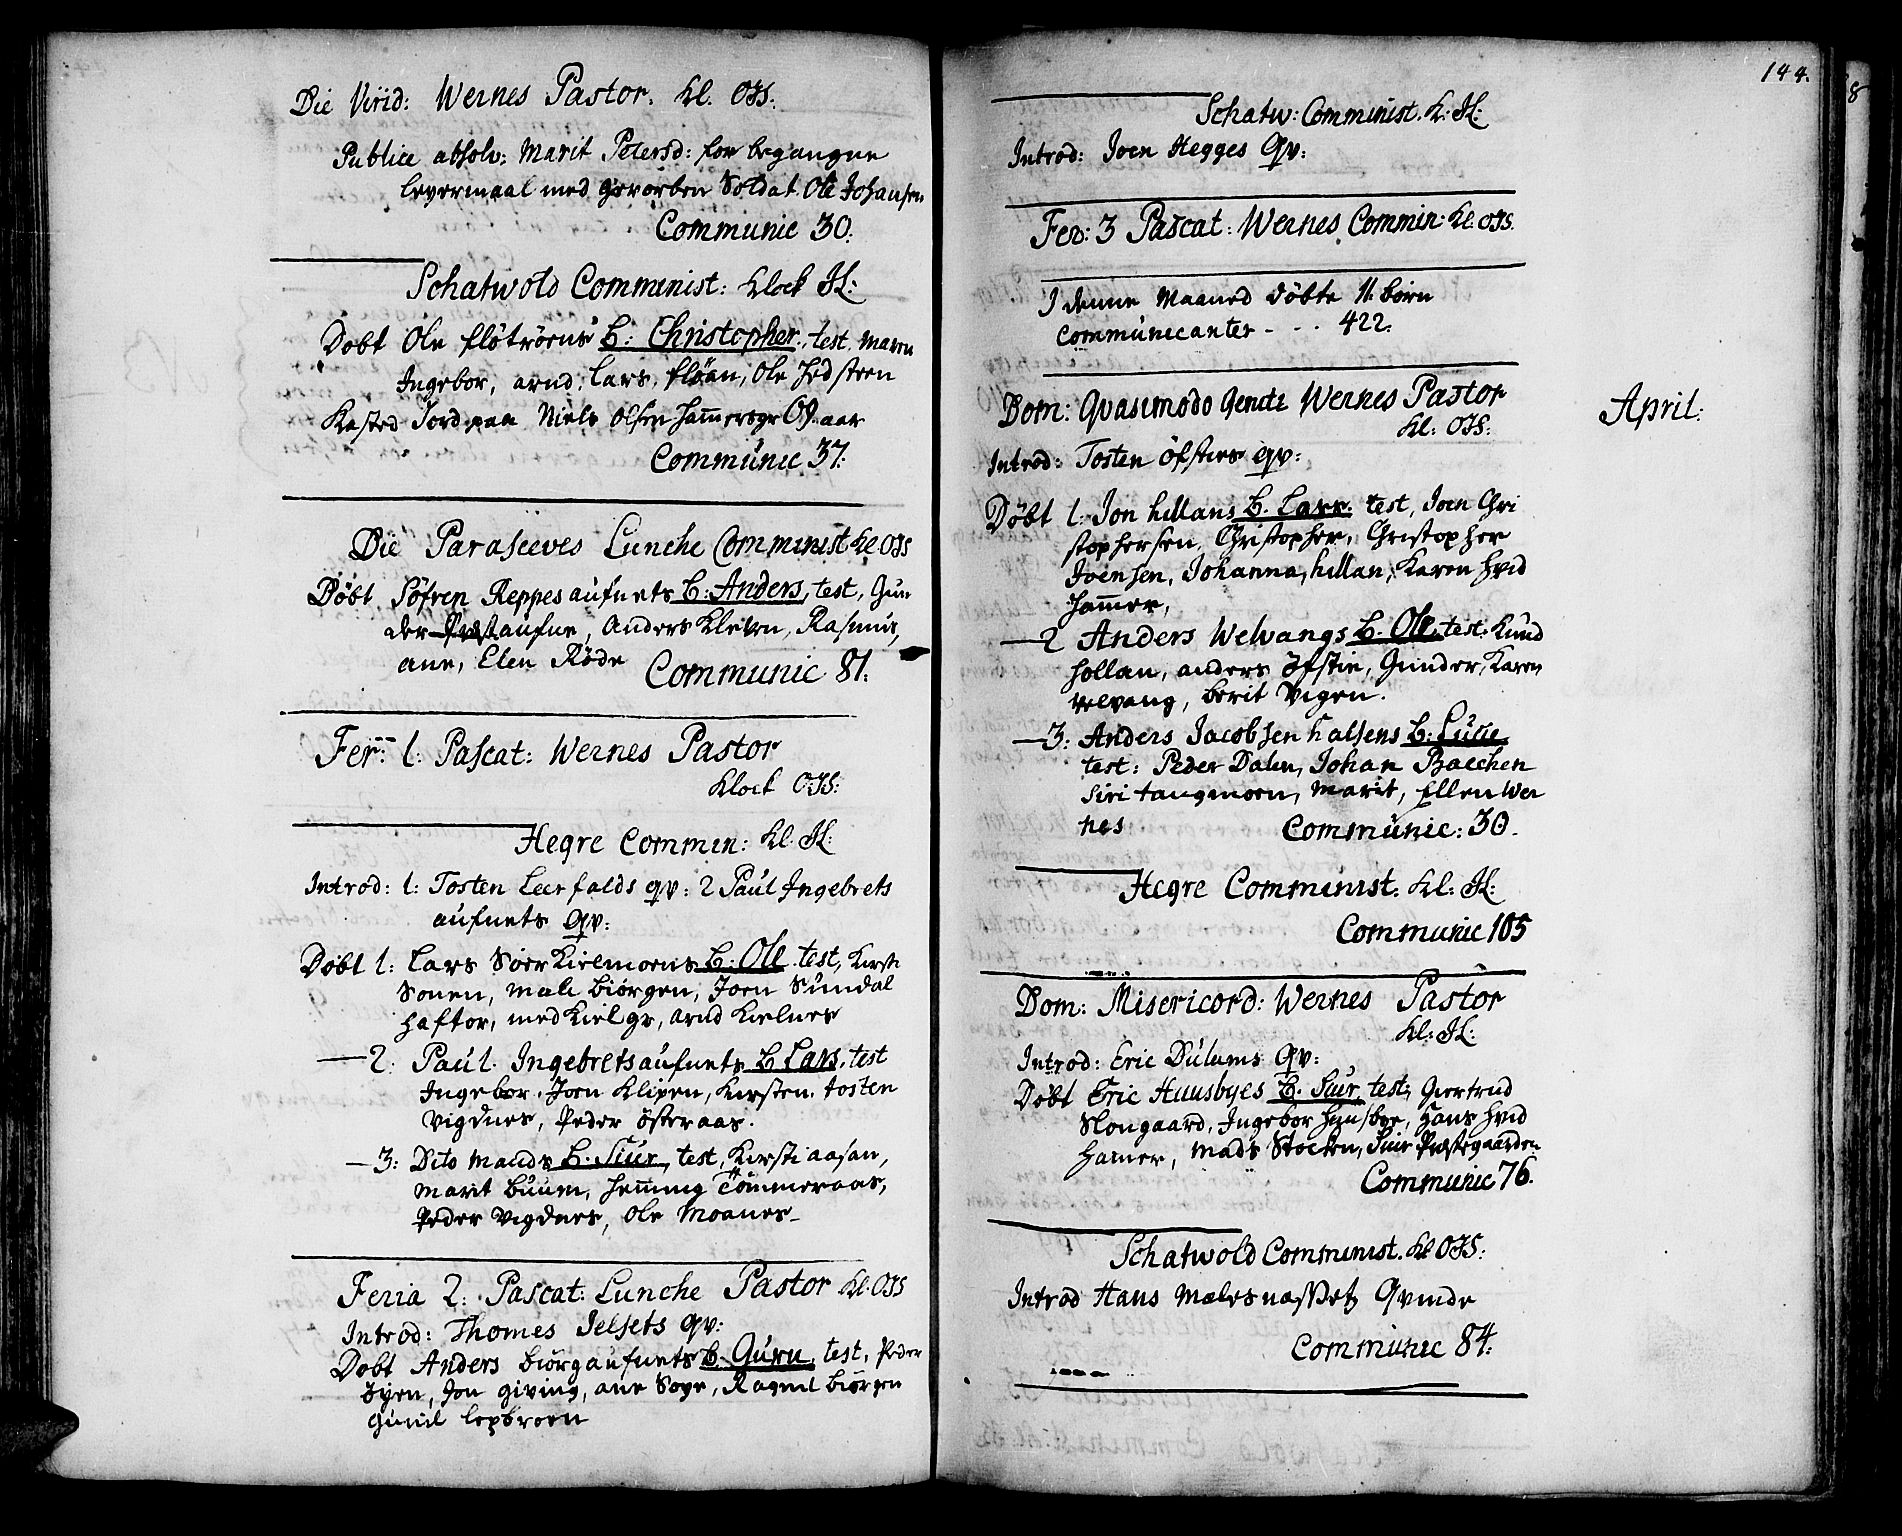 Die Virid: Wernes Pastor. kl. OJS.
Publice absolv: Marit Petersd: for begangne
leyermaal med gevorben Soldat Ole Johansen
Communic 30:
Schatwold Communist: klock JL:
Døbt Ole fløtrøens B: Christopher. test. Maren
Ingebor, arnd, Lars, fløan, Ole Hed steen
Kasted Jord paa Niels Olsen Hammersgr 69 aar
Communic 37:
Die Parasceves Lunche Communist kl OJS
Døbt Söfren Reppesaufnets B: Anders, test, Gun
der aufne, Anders Kleivn, Rasmus,
ane, Elen Røde Communic 81:
Fer: 1: Pascat: Wernes Pastor
klock OJS:
Hegre Commin: kl. JL:
Introd: 1: Tosten Leerfalds qv: 2 Paul Ingebrets
aufnets Qv:
Døbt 1: Lars Soer Kielmoens B: Ole. test, Kirsti
Sonen, male biörgen, Joen Sundal
haftor, med Kiel gr, arnd Kielnes
—2: Paul Ingebretsaufnets B Lars, test
Ingebor. Joen Klipen, Kirsten, tosten
Vigdnes, Peder österaas.
—3: Dito Mands B. Siur, test, Kirsti aasan,
Marit Buum, Hemming Tömmeraas,
Peder Vigdnes, Ole Moanes
Feria 2: Pascat: Lunche Pastor kl. OJS
Introd: Thomes Jelsets qv:
Dobt Anders biörgaufnets B. Guru, test, Peder
Öyen, Jon giving, ane Soge, Ragnil biörgen
Gunil
144.
Schatw: Communist. K: JL:
Introd: Joen Hegges Qv:
Fer: 3 Pascat: Wernes Commin: kl: OJS.
I denne Maaned døbte 11 børn
Communecanter - - - 422.
April:
Dom: Qvasimodo Genitz Wernes Pastor
kl: OJS:
Introd: Tosten öfsties qv:
Døbt 1: Jon hellans B. Lars. test, Joen Chri
stophersen, Christopher, Christopher
Joensen, Johanna, hellan, Karen Hvid
Hamer,
—2 Anders Welvangs B. Ole, test. Kund
hollan, anders öfstie, Gunder, Karen
velvang, berit Vigen.
—3: Anders Jacobsen halsens B: Lucie
test: Peder Dalen, Johan Baechen
Siri tangmoen, Marit, Ellen Wer
nes Communic: 30.
Hegre Communist. kl: JL:
Communic 105
Dom: Misericord: Wernes Pastor
kl: JL:
Introd: Eric Dulums Qv:
Døbt Eric Huusbyes B. Siur, test; Giertrud
Slongaard, Ingebor Husbye, Hans Hvid
hamer, Mads Stocken, Siur Præstegaarden
Communic 76.
Schatwold Communist. kl OJS:
Introd Hans Mælesnæsset Qvinde
Communic 84: